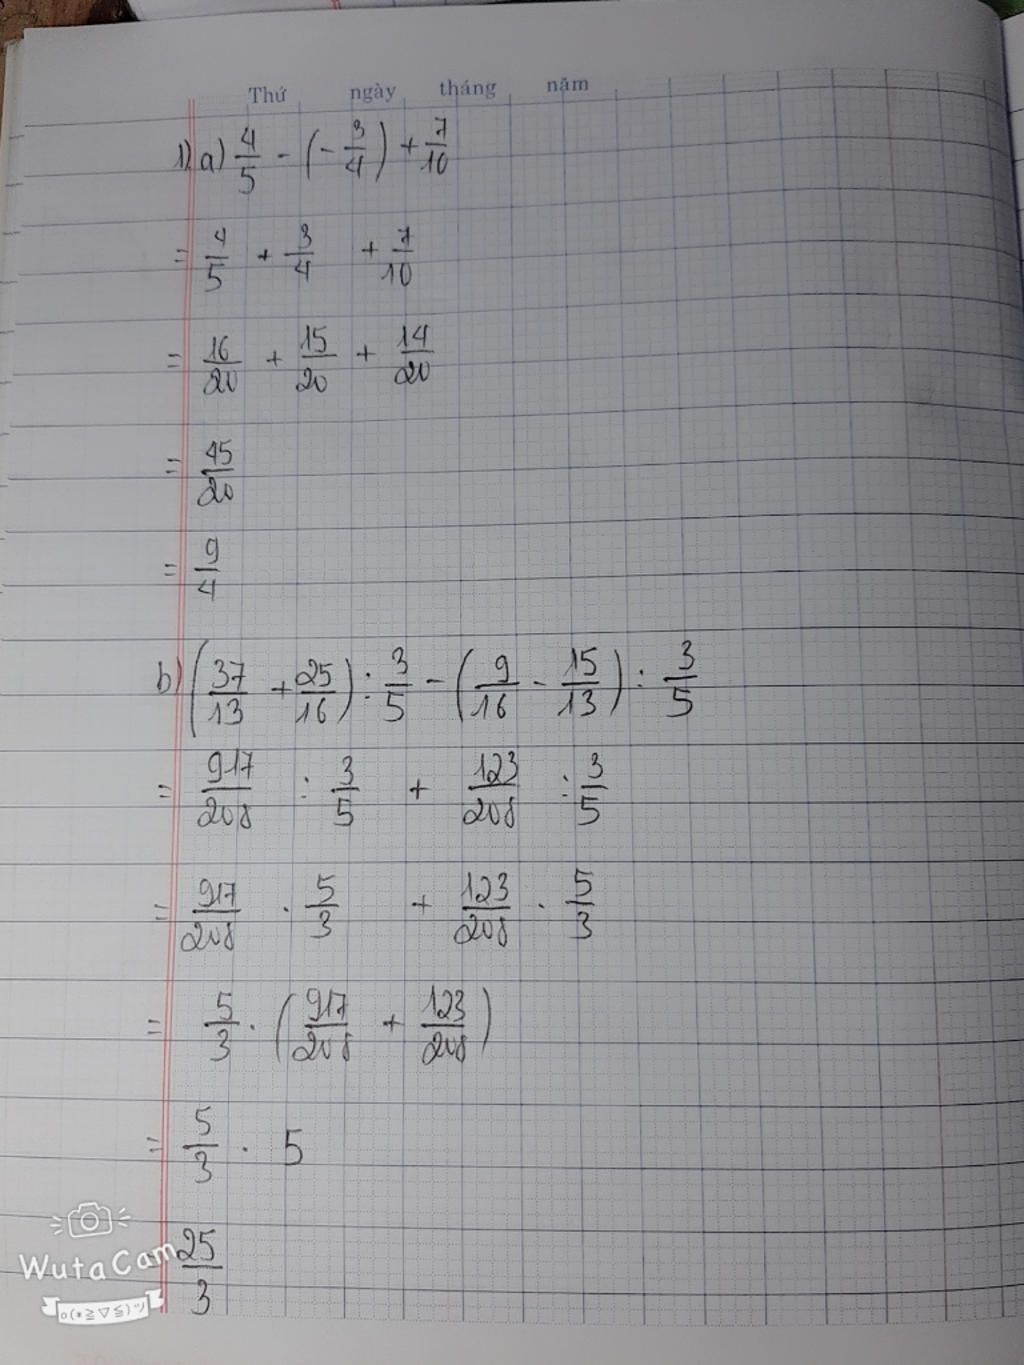 Thứ ngày tháng năm
1) a) 4/5 - (-3/4) + 7/10
= 4/5 + 3/4 + 7/10
= 16/20 + 15/20 + 14/20
= 45/20
= 9/4
b) (37/13 + 25/16) : 3/5 - (9/16 - 15/13) : 3/5
= 917/208 : 3/5 + 123/208 : 3/5
= 917/208 . 5/3 + 123/208 . 5/3
= 5/3 . (917/208 + 123/208)
= 5/3 . 5
25/3
WutaCam
o(*≧▽≦)ツ